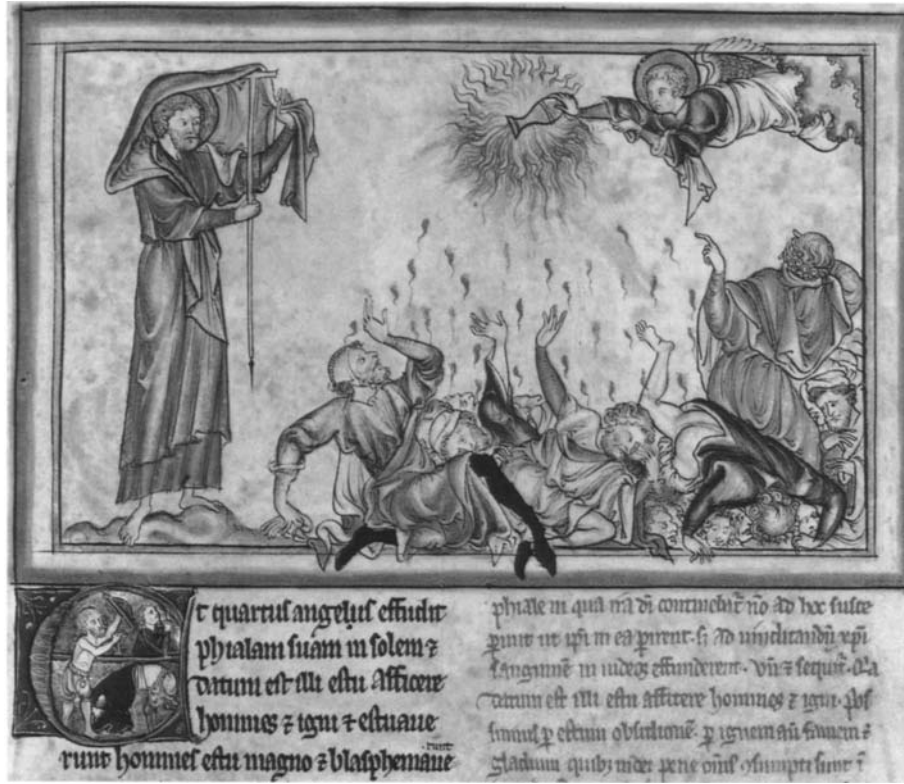 Et quartus angelus effudit
phialam suam in solem ⁊
datum est illi estu afficere
homines ⁊ igni ⁊ estuaue
runt
runt homines estu magno ⁊ blasphemaue
phiale in qua ira dī nō ad hoc susce
perunt ut ipī in ea perirent. s; ad xpī
sanguinē in iudeos effunderent. Vn̄ ⁊
datum est illi estu afficere homines ⁊ igni.
sumus p estum obsidionē. p ignem aū famem ⁊
gladium quibꝫ iudei pene om̄s ꝯsumpti sunt ī